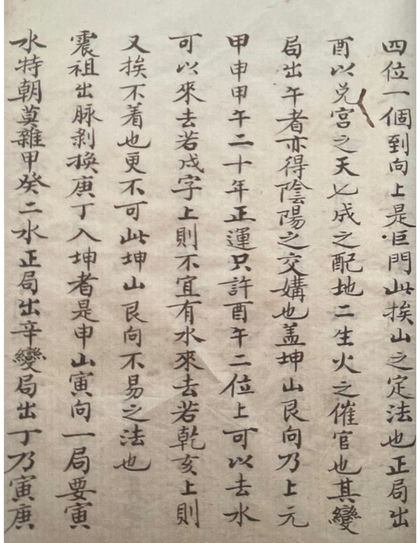 四位一個到向上是巨門此挨山之定法也正局出
酉以兌宮之天七成之配地二生火之催官也其變
局出午者亦得陰陽之交媾也蓋坤山艮向乃上元
甲申甲午二十年正運只許酉午二位上可以去水
可以來去若戍字上則不宜有水來去若乾亥上則
又挨不着也更不可此坤山艮向不易之法也
震祖出脉剥換庚丁入坤者是申山寅向一局要寅
水特朝莫雜甲癸二水正局出辛變局出丁乃寅庚